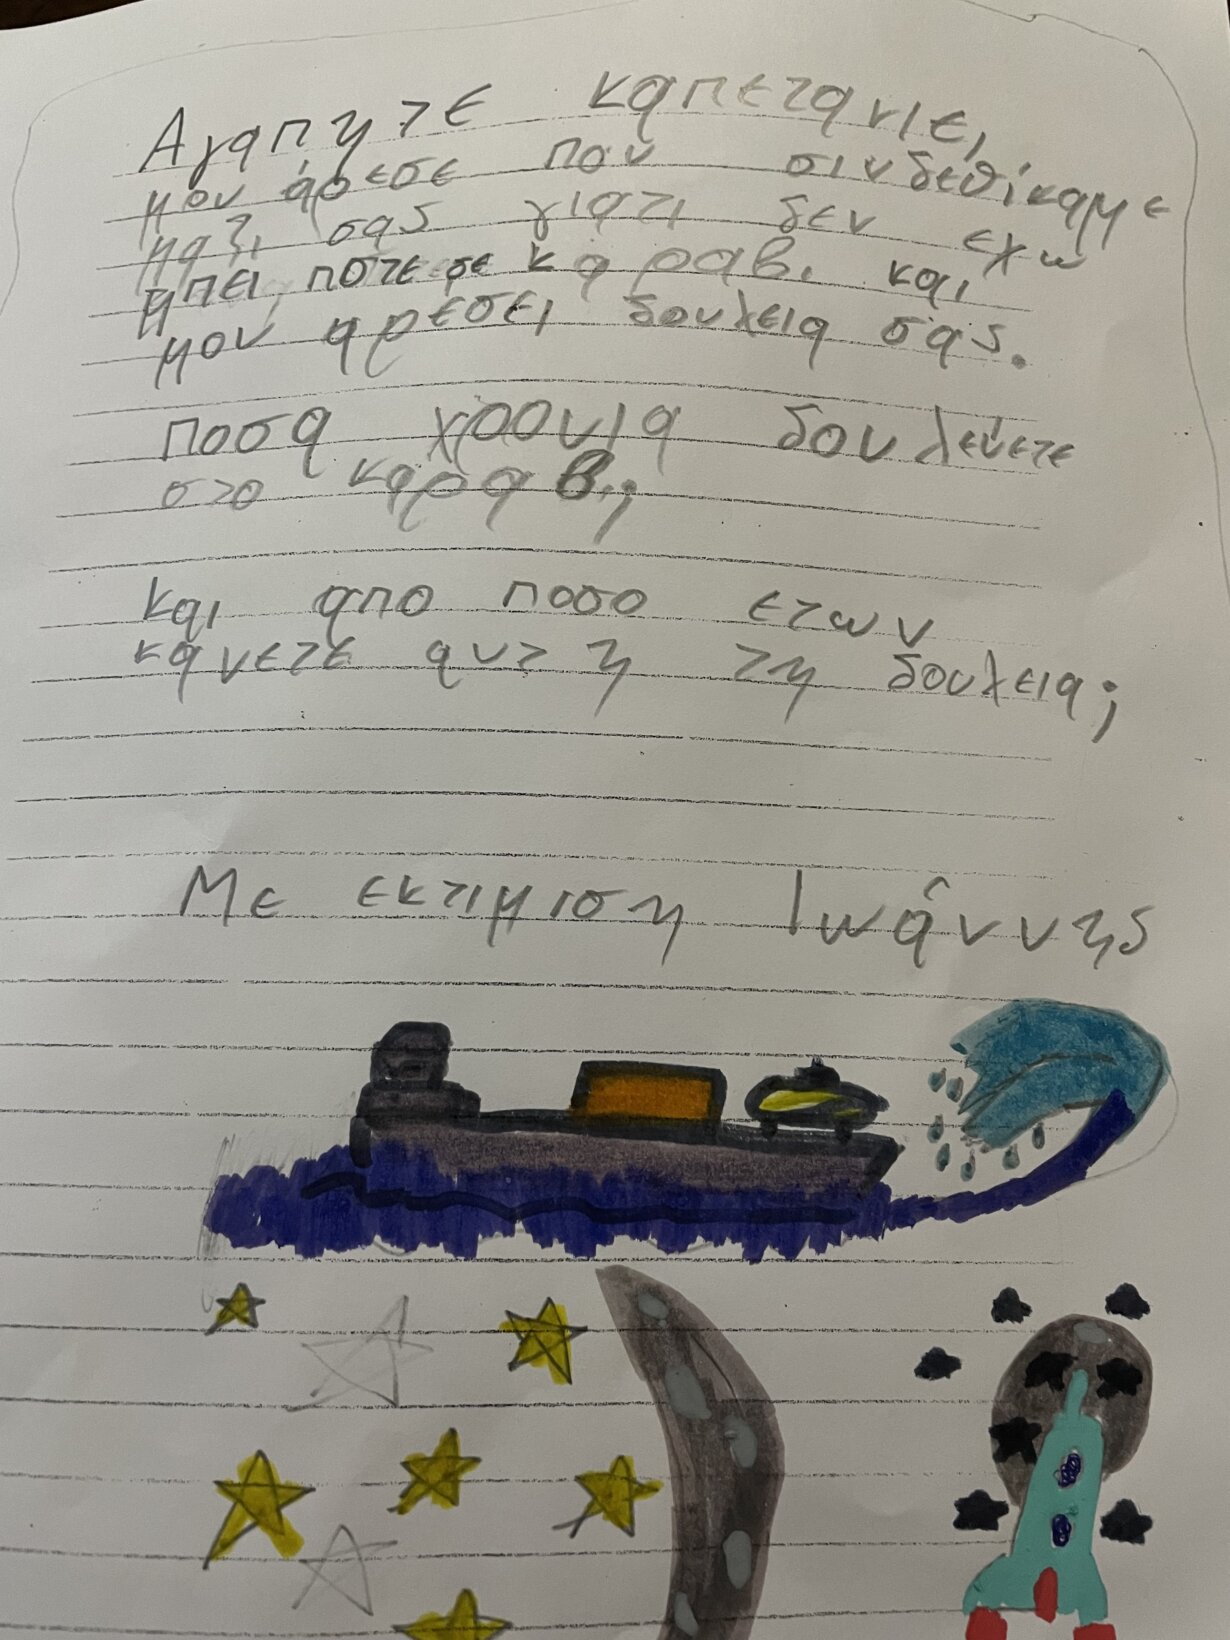 Αγαπητε καπετανιε,
μου άρεσε που σινδεθίκαμε
μαζι σας γιατι δεν εχω
μπει ποτε σε καραβι και
μου αρεσει δουλεια σας.
ποσα χρονια δουλεύετε
στο καραβι;
και απο ποσο ετων
κανετε αυτη τη δουλεια;
Με εκτιμιση Ιωάννης